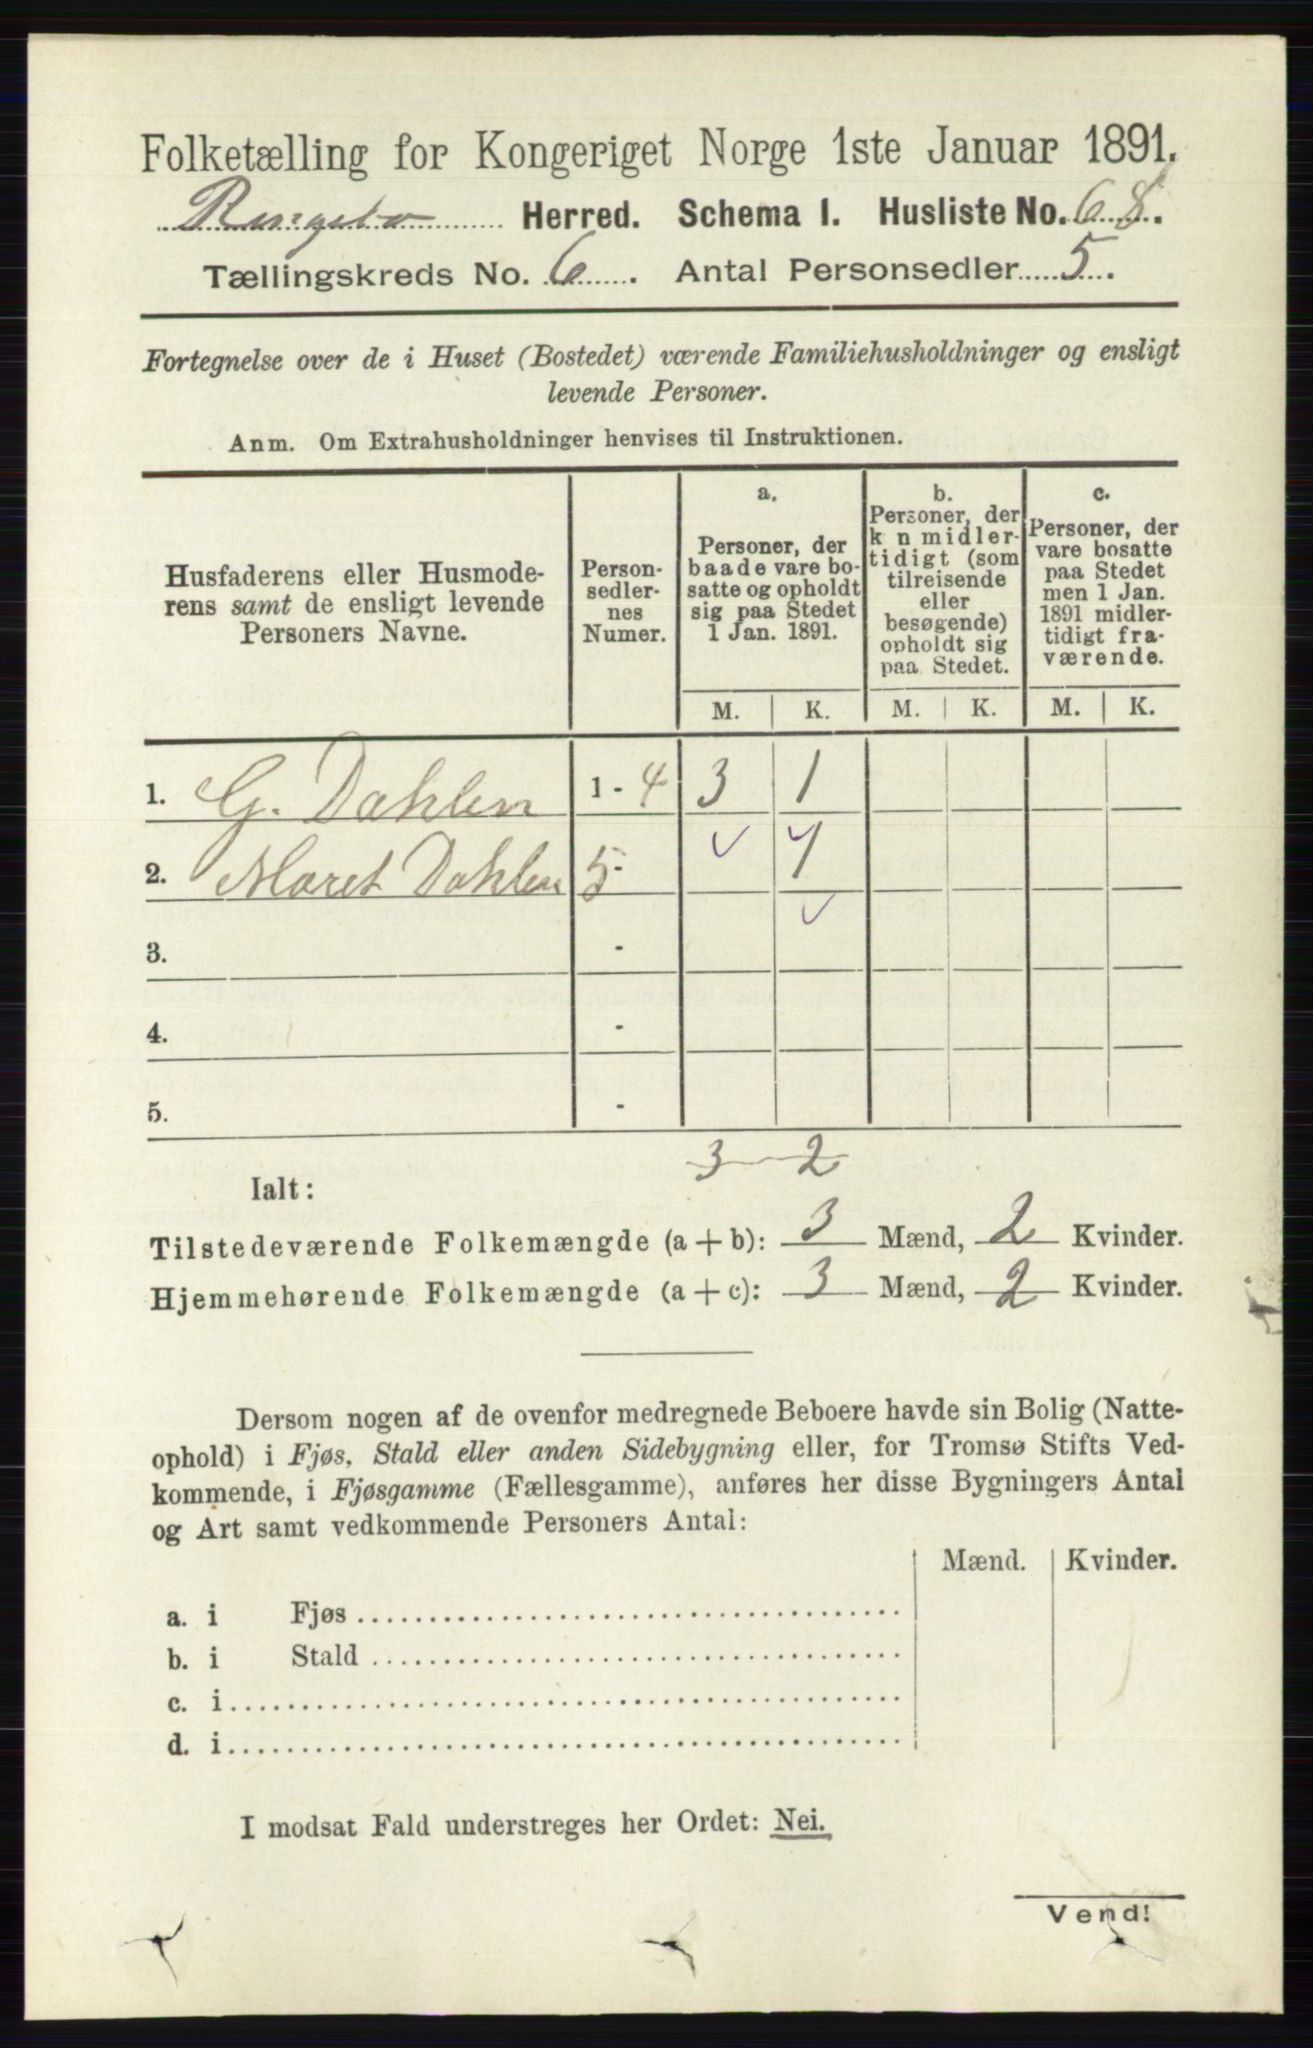 Folketælling for Kongeriget Norge 1ste Januar 1891.
Ringebo Herred. Schema I. Husliste No. 68.
Tællingskreds No. 6. Antal Personsedler 5.
Fortegnelse over de i Huset (Bostedet) værende Familiehusholdninger og ensligt
levende Personer.
Anm. Om Extrahusholdninger henvises til Instruktionen.
Husfaderens eller Husmode-
rens samt de ensligt levende
Personers Navne.
Person-
sedler-
nes
Numer.
a.
Personer, der
baade vare bo-
satte og opholdt
sig paa Stedet
1 Jan. 1891.
b.
Personer, der
k n midler-
tidigt (som
tilreisende
eller
besøgende)
opholdt sig
paa Stedet.
c.
Personer, der
vare bosatte
paa Stedet
men 1 Jan.
1891 midler-
tidigt fra-
værende.
M. K. M. K. M. K.
1. G. Dahlen 1 - 4 3 1
2. Maret Dahlen 5 - 1
3. -
4. -
5. -
3 2
Ialt:
Tilstedeværende Folkemængde (a + b): 3 Mænd, 2 Kvinder.
Hjemmehørende Folkemængde (a + c): 3 Mænd, 2 Kvinder.
Dersom nogen af de ovenfor medregnede Beboere havde sin Bolig (Natte-
ophold) i Fjøs, Stald eller anden Sidebygning eller, for Tromsø Stifts Ved-
kommende, i Fjøsgamme (Fællesgamme), anføres her disse Bygningers Antal
og Art samt vedkommende Personers Antal:
Mænd. Kvinder.
a. i Fjøs
b. i Stald
c. i
d. i
I modsat Fald understreges her Ordet: Nei.
Vend!